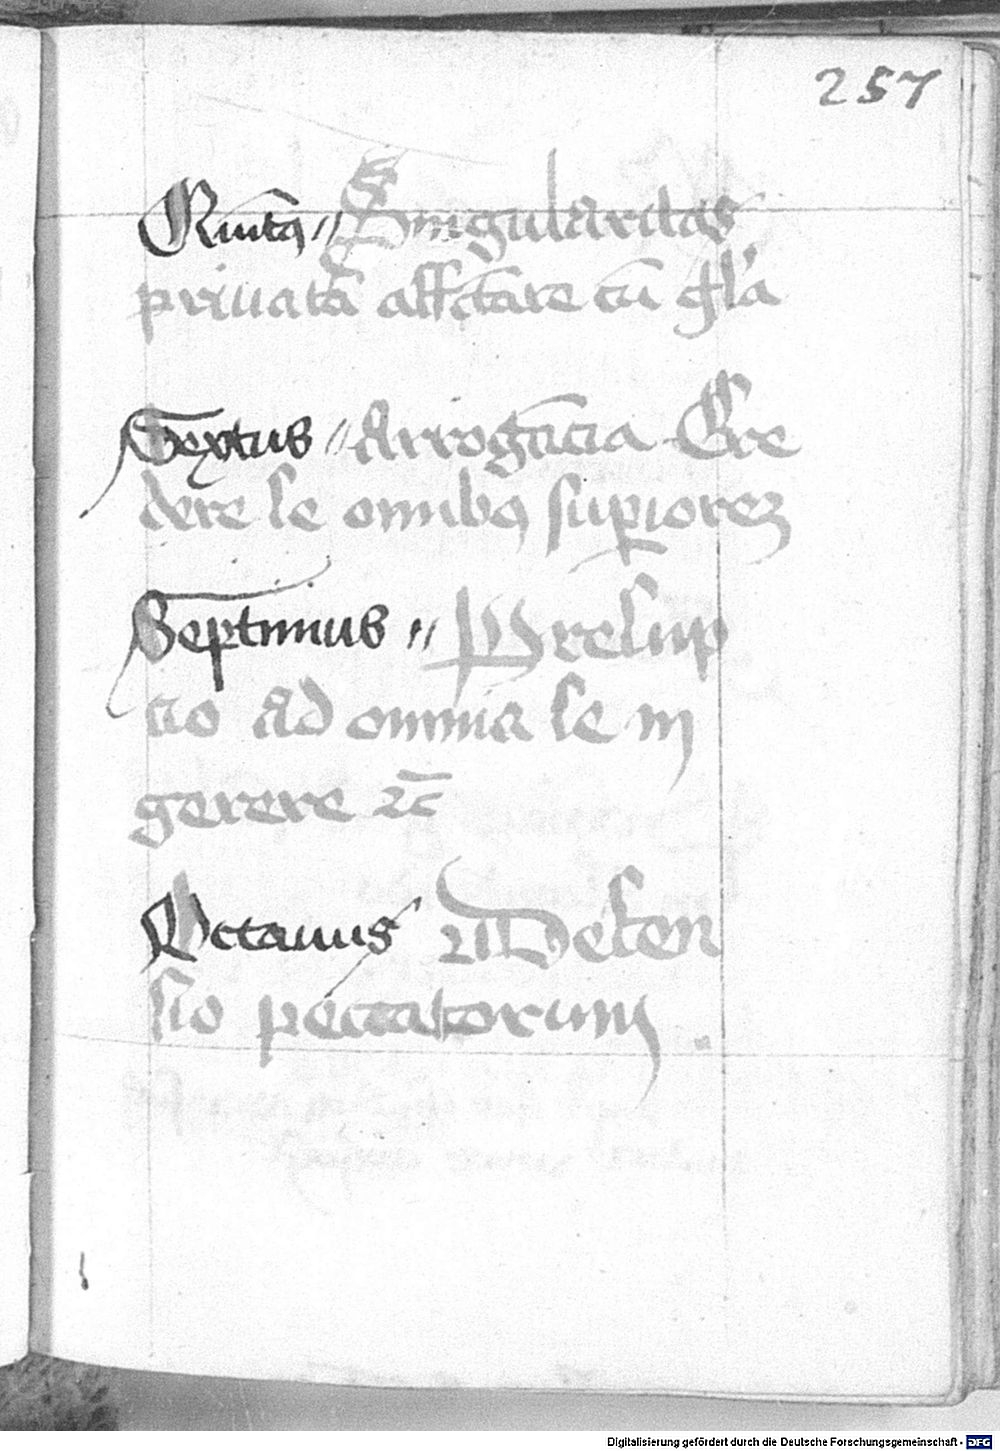 257
Quintꝰ // Singularitas
privatā affc̄tare cū gl̄a
Sextus // Arrogācia Cre
dere se omnibꝰ supiorez
Septimus // Presūp
cio Ad omnia se in
gerere ⁊c̄
Octavus Defen
sio peccatorum
Digitalisierung gefördert durch die Deutsche Forschungsgemeinschaft - DFG